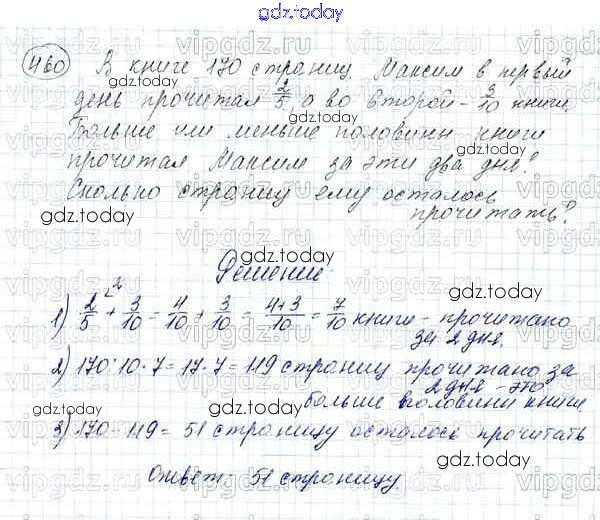 gdz.today
460 В книге 170 страниц. Максим в первый
день прочитал 2/5, а во второй - 3/10 книги.
Больше или меньше половины книги
прочитал Максим за эти два дня?
Сколько страниц ему осталось
прочитать?
Решение
1) 2/5 + 3/10 = 4/10 + 3/10 = 4+3/10 = 7/10 книги - прочитано
за 2 дня.
2) 170:10·7=17·7=119 страниц прочитано за
2 дня - это
больше половины книги
3) 170-119= 51 страницу осталось прочитать
Ответ: 51 страницу
gdz.today